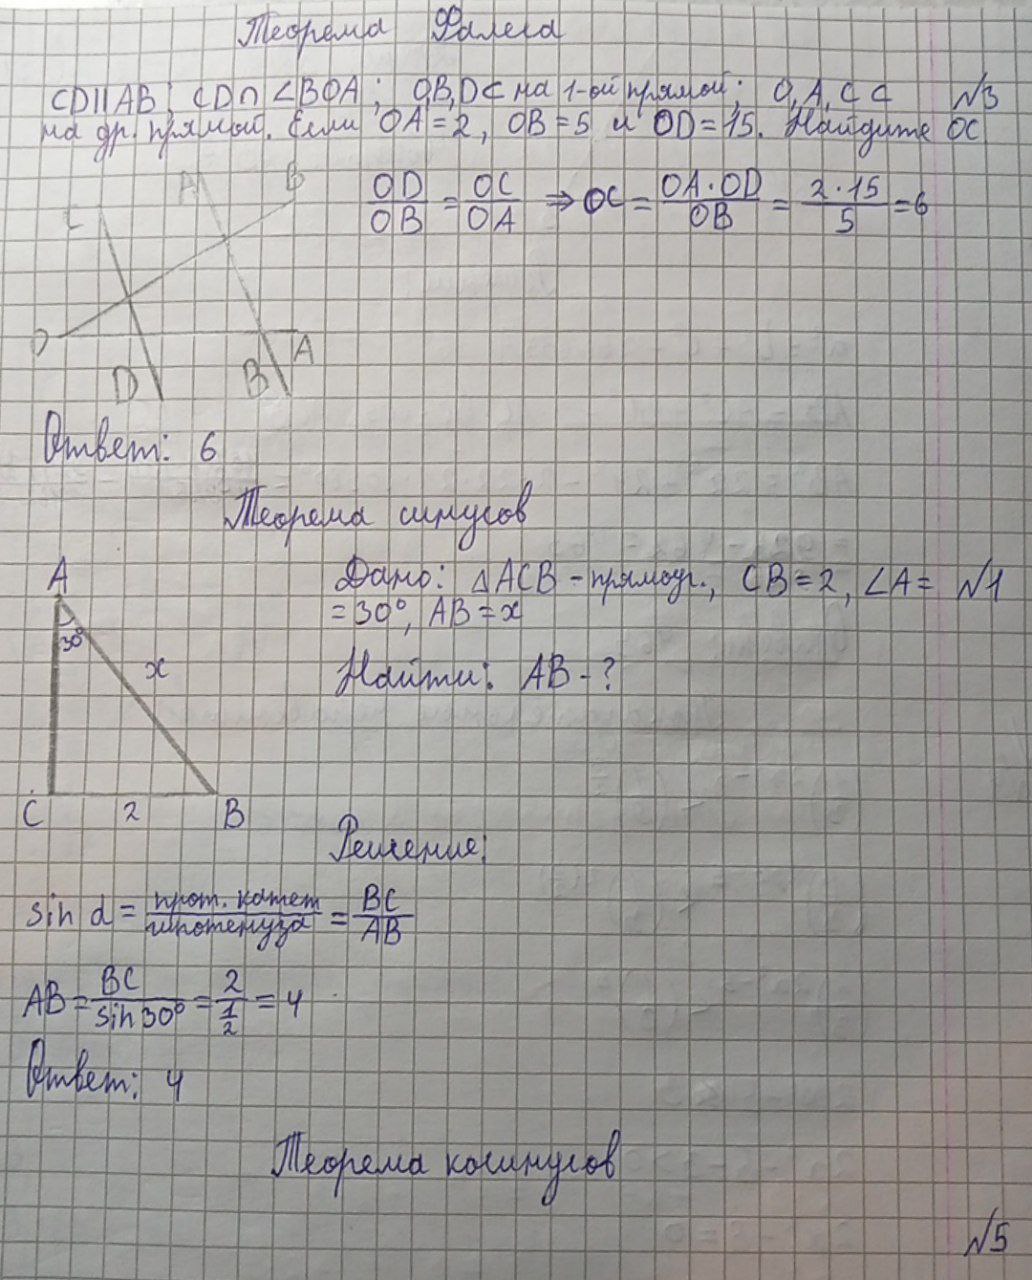 Теорема Фалеса
CD∥AB; CD∩∠BOA; O,B,D⊂ на 1-ой прямой; O, A, C ⊂ №3
на др. прямой. Если OA=2, OB=5 и OD=15. Найдите OC
OD/OB = OC/OA ⇒ OC = OA·OD/OB = 2·15/5 = 6
C A B
O D B A
Ответ: 6
Теорема синусов
Дано: △ACB - прямоуг., CB=2, ∠A= №1
=30°, AB=x
Найти: AB-?
A
30°
x
C 2 B
Решение:
sin α = прот. катет/гипотенуза = BC/AB
AB = BC/sin30° = 2/(1/2) = 4
Ответ: 4
Теорема косинусов
№5